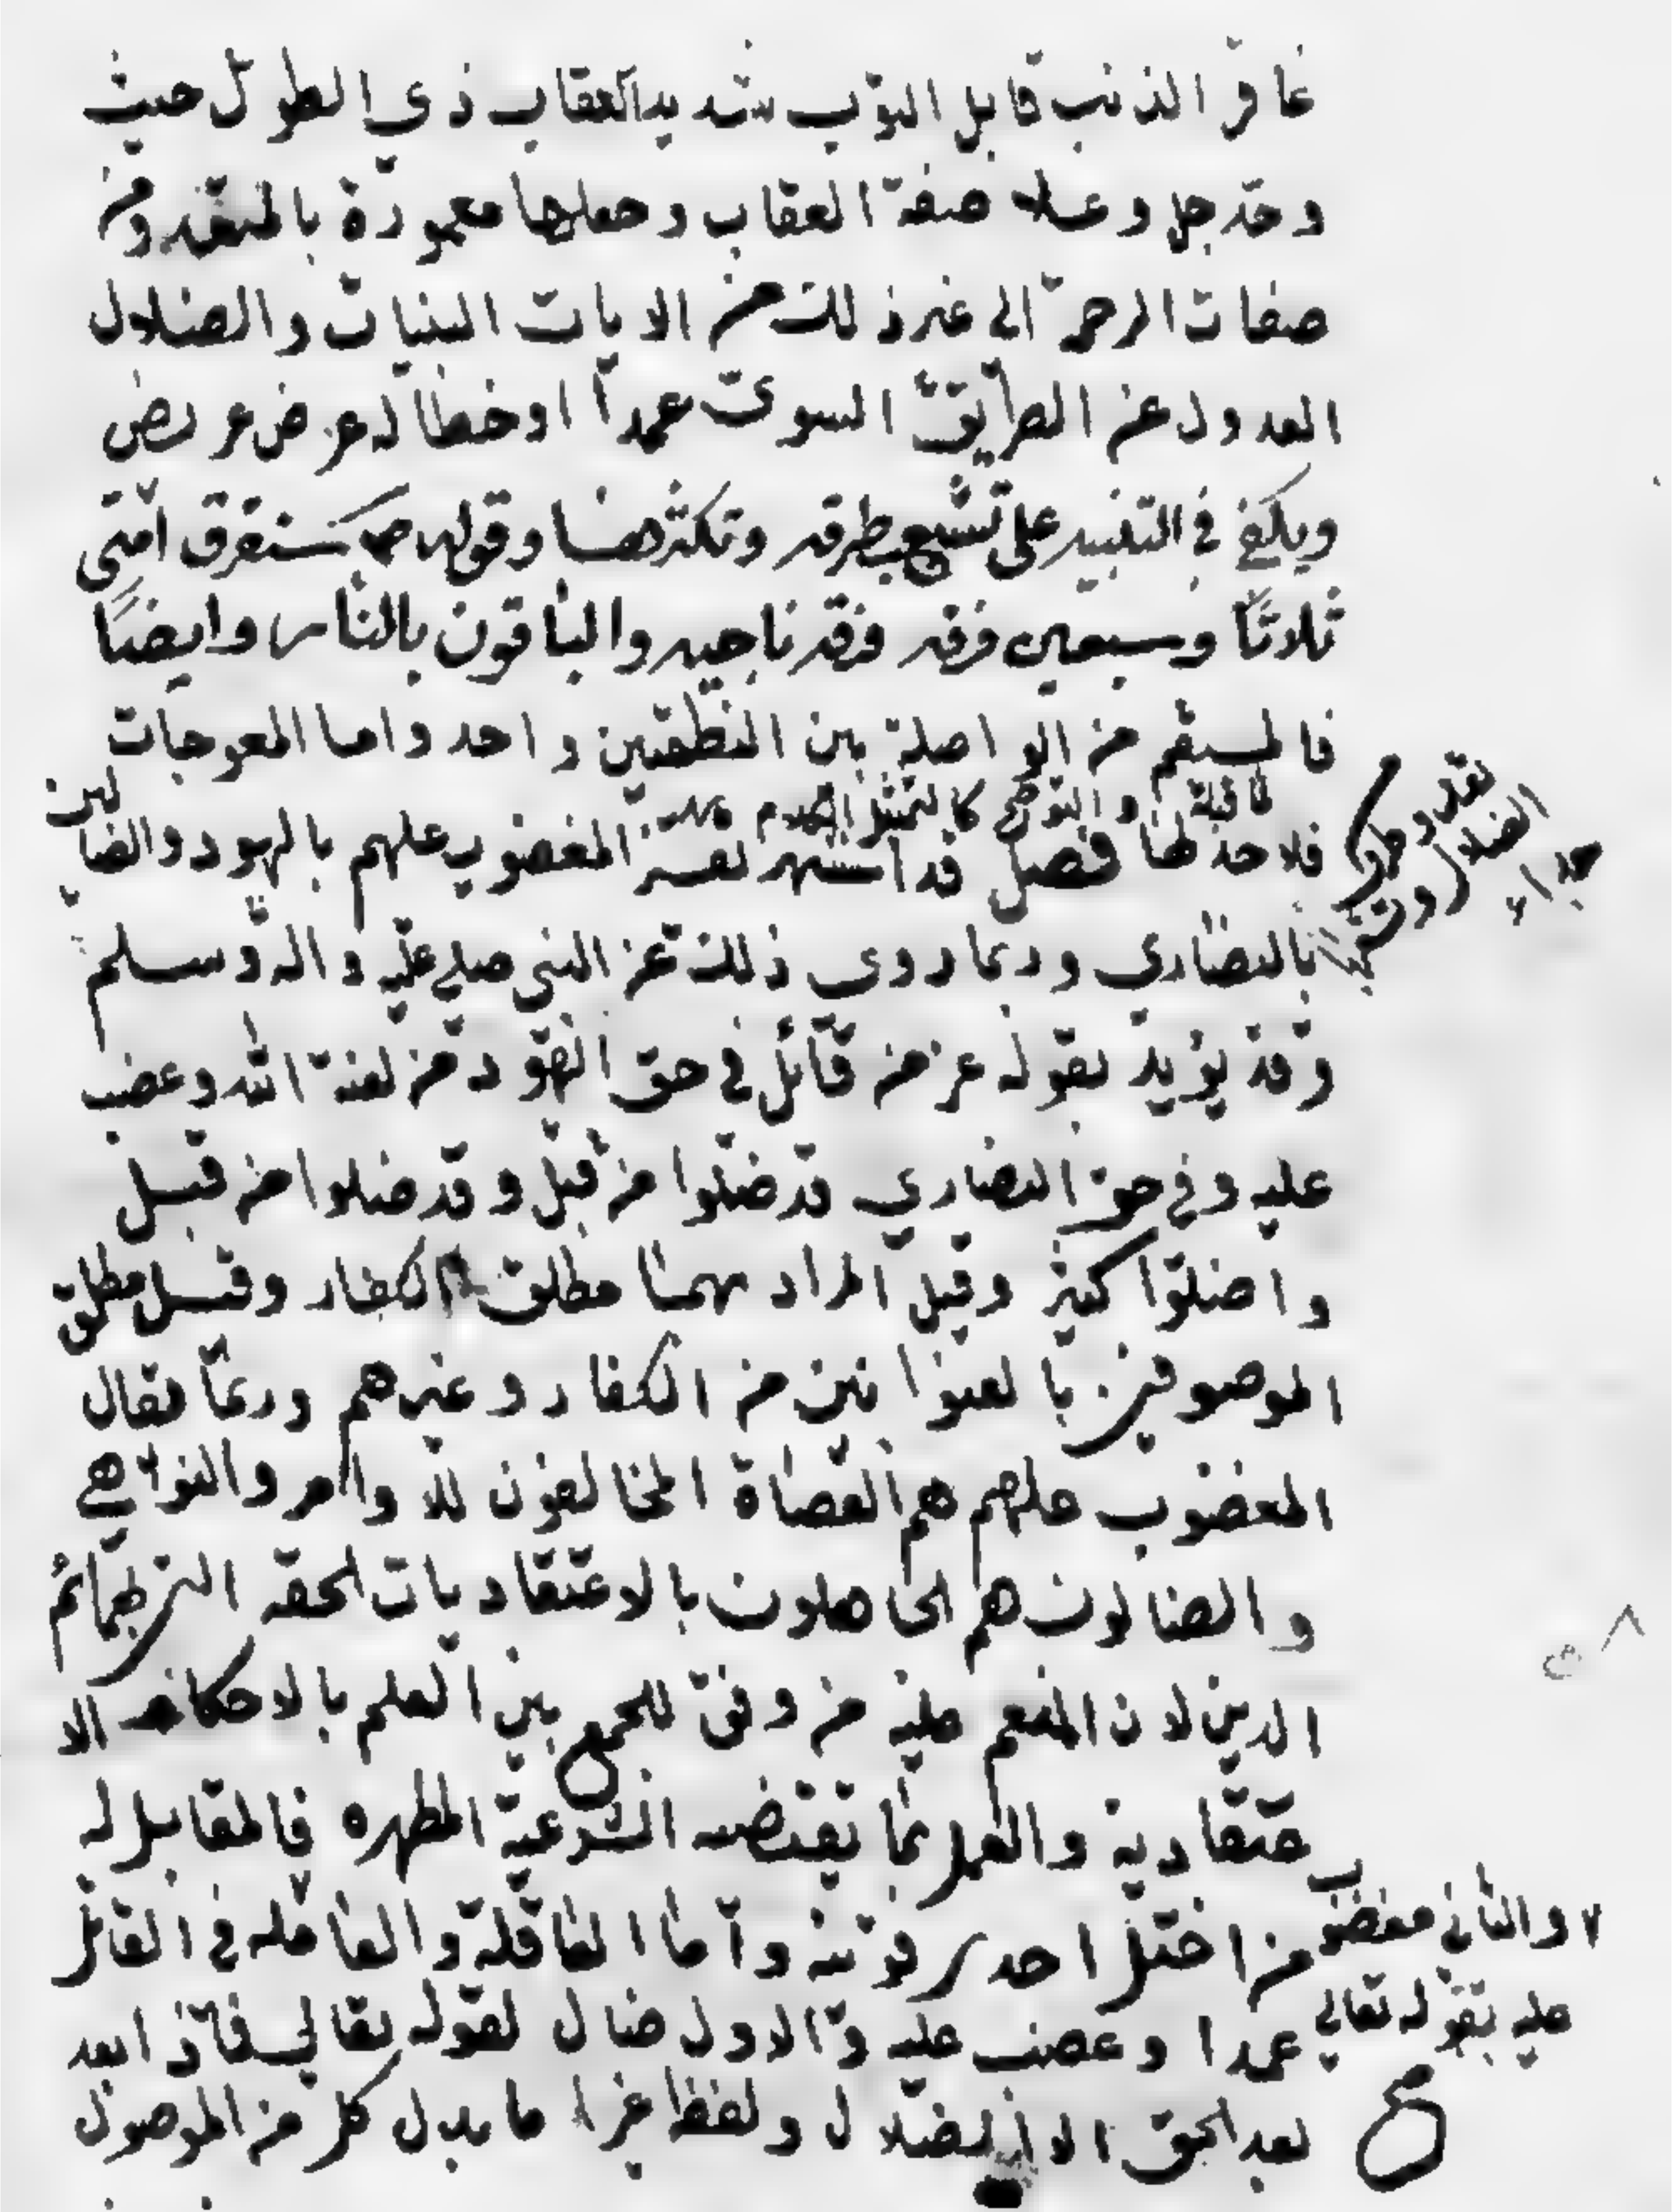 غافر الذنب قابل التوب شديد العقاب ذي الطول حيث
وحد جل وعلا صفة العقاب وجعلها مغمورة بالمتعدد من
صفات الرحمة الى غير ذلك من الايات البينات والضلال
العدول عن الطريق السوي عمدا او خطأ له عرض عريض
ويكفي في التنبيه على تشعب طرقه وتكثرها وقوله ص ستفرق امتي
ثلاثا وسبعين فرقه فرقه ناجيه والباقون بالنار وايضا
فالمستقيم من الواصلة بين النقطتين واحد واما المعوجات
فلا حد لها فصل قد اشتهر تفسير المغضوب عليهم باليهود والضالين
بالنصاري وربما روي ذلك عن النبي صلى عليه واله وسلم
وقد يؤيد بقوله عز من قائل في حق اليهود من لعنة الله وغضب
عليه وفي حق النصاري قد ضلوا من قبل وقد ضلوا من قبل
واضلوا كثير وقيل المراد بهما مطلق الكفار وقيل مطلق
الموصوفين بالعنوانين من الكفار وغيرهم وربما يقال
المغضوب عليهم هم العصاة المخالفون للاوامر والنواهي
والضالون هم الجاهلون بالاعتقاديات الحقه التي
الدين لان المنعم عليه من وفق للجمع بين العلم بالاحكام الا
عتقادية والعمل بما تقتضيه الشرعية المطهره فالمقابل له
من اختل احد قوتيه واما العاقلة والعامله في القاتل
والثاني مغضوب
عليه بقوله تعالي
عمدا وغضب عليه والاول ضال لقوله تعالي فماذا بعد
بعد الحق الا الضلال ولفظ غير اما بدل كل من الموصول